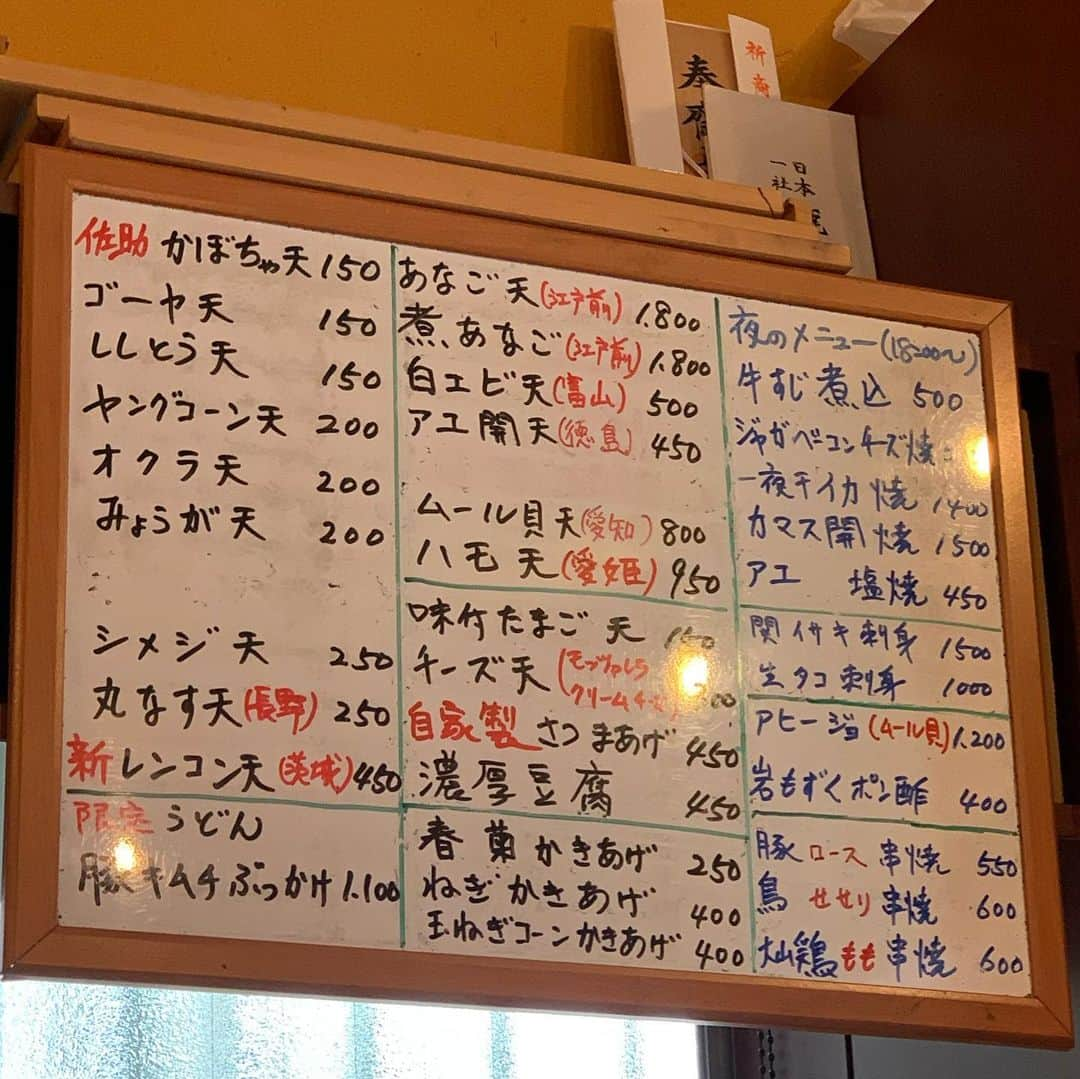 奉
祈
日本
一社
佐助 かぼちゃ天 150
ゴーヤ天 150
ししとう天 150
ヤングコーン天 200
オクラ天 200
みょうが天 200
シメジ天 250
丸なす天(長野) 250
新レンコン天(茨城) 450
限定 うどん
豚キムチぶっかけ 1.100
あなご天(江戸前) 1.800
煮あなご(江戸前) 1.800
白エビ天(富山) 500
アユ開天(徳島) 450
ムール貝天(愛知) 800
ハモ天(愛媛) 950
味付たまご天 150
チーズ天(モッツァレラ
クリームチーズ)
自家製 さつまあげ 450
濃厚豆腐 450
春菊かきあげ 250
ねぎかきあげ 400
玉ねぎコーンかきあげ 400
夜のメニュー(18:00〜)
牛すじ煮込 500
ジャガベーコンチーズ焼
一夜干イカ焼 1400
カマス開焼 1500
アユ 塩焼 450
関イサキ刺身 1500
生タコ刺身 1000
アヒージョ(ムール貝) 1.200
岩もずくポン酢 400
豚ロース串焼 550
鳥 せせり 串焼 600
大山鶏もも串焼 600